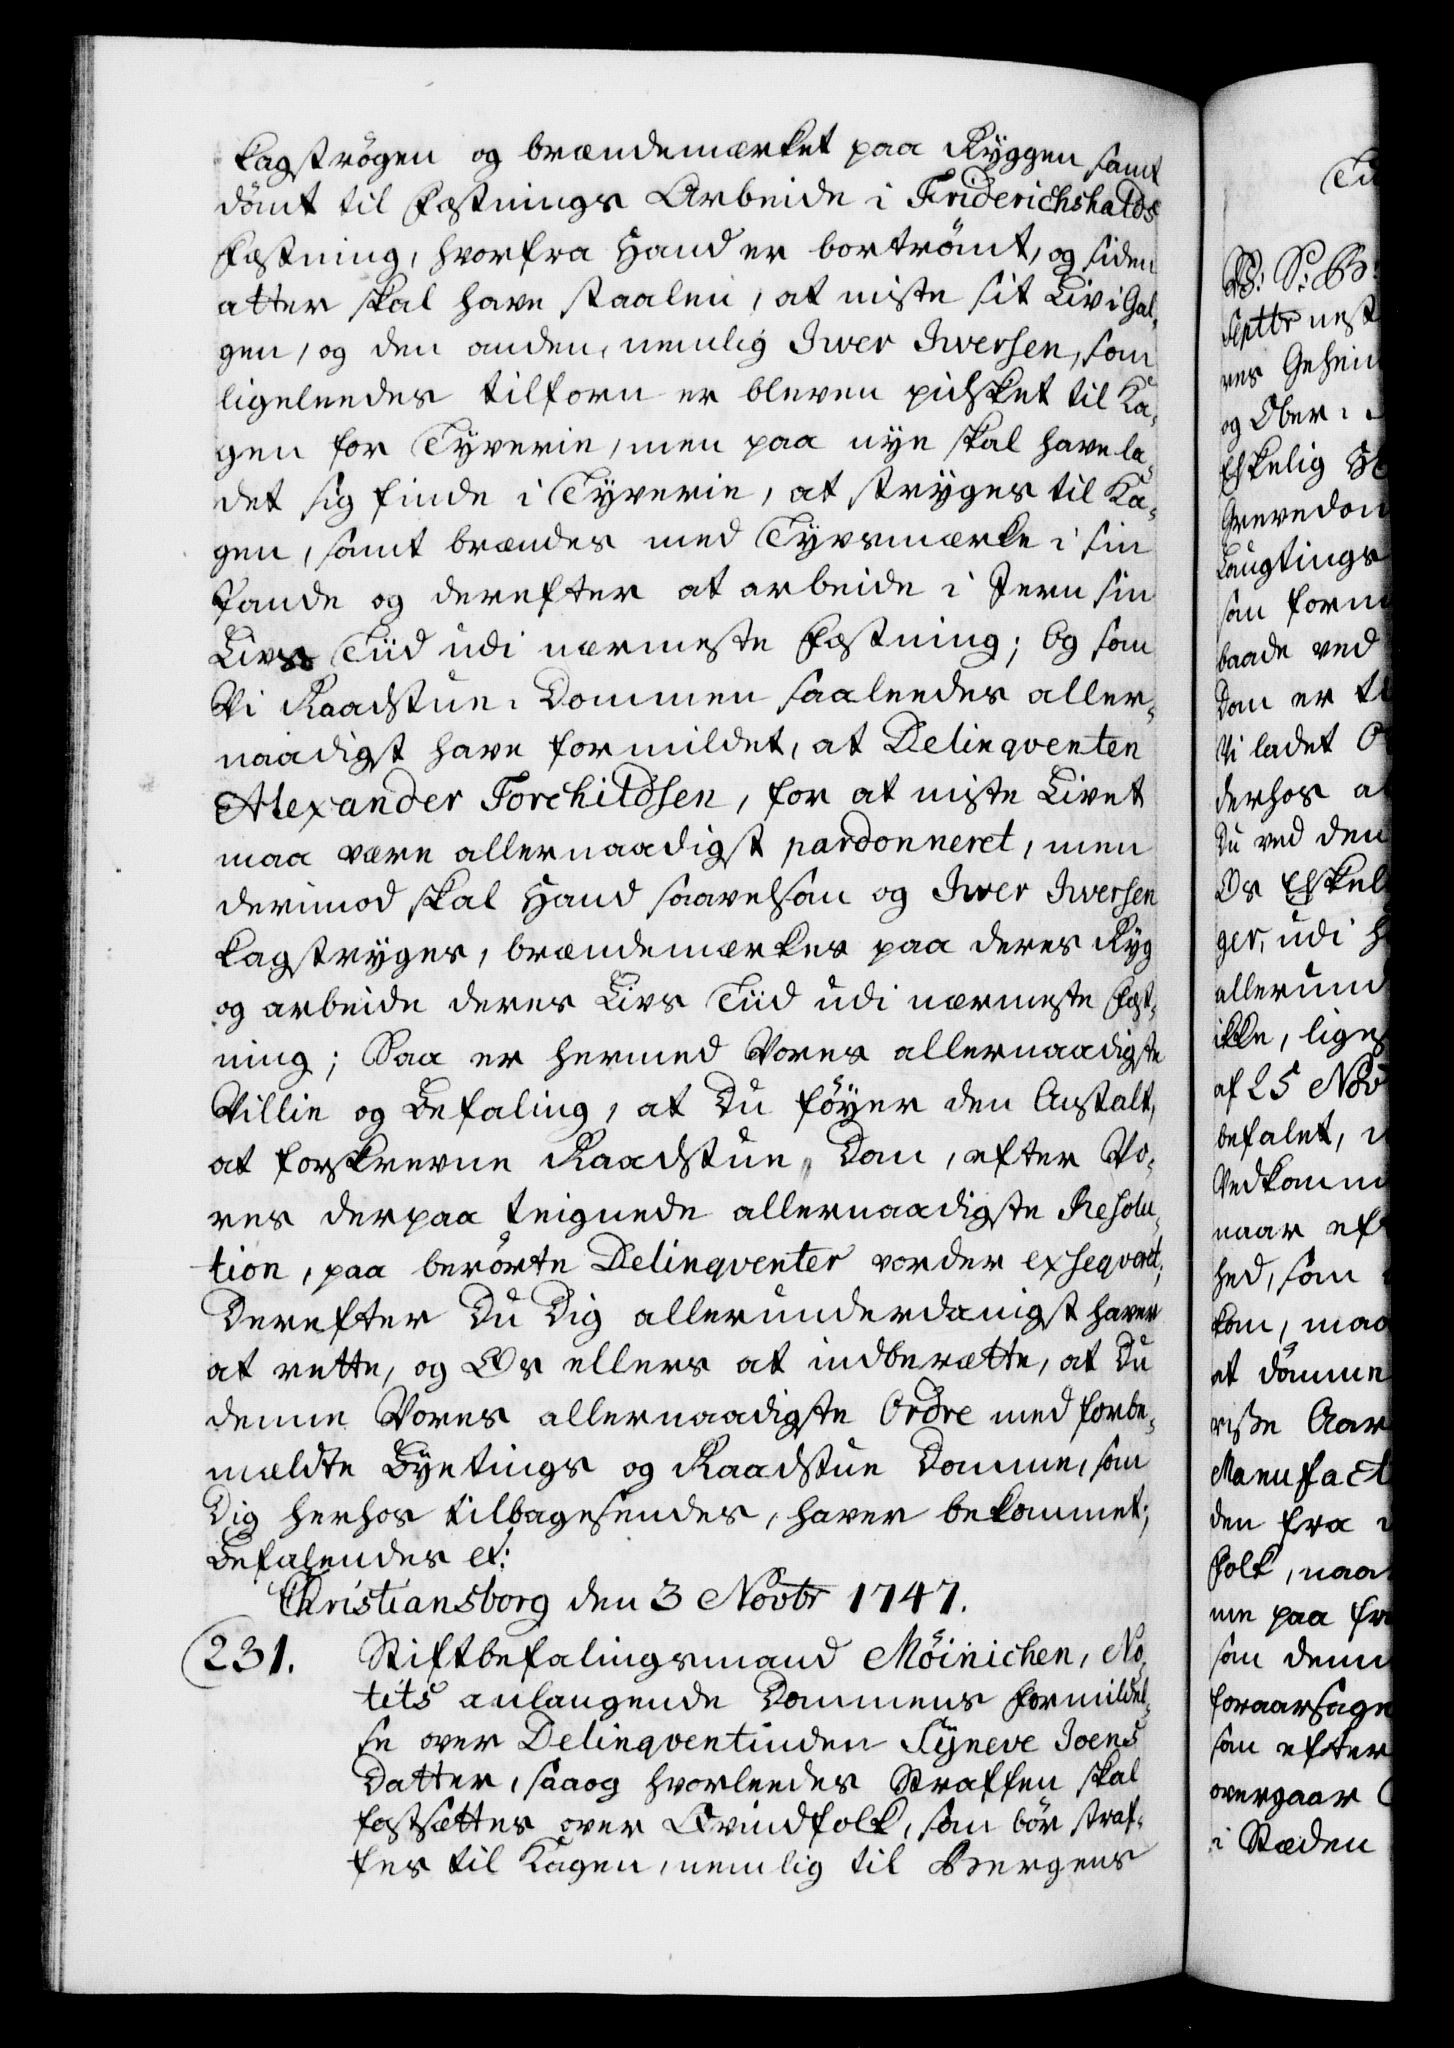 kagstrøgen og brændemærket paa Ryggen samt
dömt til Fæstnings Arbeide i Friderichshalds
Fæstning, hvorfra Hand er bortrömt, og siden
atter skal have staalen, at miste sit Liv i Gal-
gen, og den anden, nemlig Iwer Iwersen, som
ligeleedes tilforn er bleven pidsket til Ka-
gen for Tyverie, men paa nye skal have la-
det sig finde i Tyverie, at stryges til Ka-
gen, samt brændes med Tyvsmærke i sin
Pande og derefter at arbeide i Jern sin
Livs Tiid udi nærmeste Fæstning; Og som
Vi Raadstue-Dommen saaleedes aller-
naadigst have formildet, at Delinqventen
Alexander Torchildsen, for at miste Livet
maa være allernaadigst pardonneret, men
derimod skal Hand saavelsom og Iwer Iwersen
kagstryges, brændemærkes paa deres Ryg
og arbeide deres Livs Tiid udi nærmeste Fæst-
ning; Saa er hermed Vores allernaadigste
Villie og Befaling, at Du föyer den Anstalt,
at forskrevne Raadstue-Dom, efter Vo-
res derpaa teignede allernaadigste Resolu-
tion, paa berörte Delinqventer vorder exseqveret;
Derefter Du Dig allerunderdanigst haver
at rette, og Os ellers at indberætte, at Du
denne Vores allernaadigste Ordre med forbe-
mældte Byetings og Raadstue Domme, som
Dig herhos tilbagesendes, haver bekommet;
Befalendes et:
Christiansborg den 3 Novbr 1747.
231. Stiftbefalingsmand Möinichen, No-
tits anlangende Dommens Formildel-
se over Delinqventinden Syneve Joens
Datter, saaog hvorleedes Straffen skal
fastsættes over Qvindfolk, som bör straf-
fes til Kagen, nemlig til Bergens
Septbr nest
res Geheim
og Ober-
Elskelig
Grevedom
Laugtings
som form
baade ved
Dom er
Vi ladet
derhos a
Du ved den
Os Elskel
ger, udi H
allerund
ikke, liges
af 25 Nov
befalet,
Vedkomm
naar ef
hed, som
kom, maa
at dömme
Aar
Manufact
den fra
Folk, naa
me paa fr
som denn
foraarsage
som efter
overgaar
i Stæden